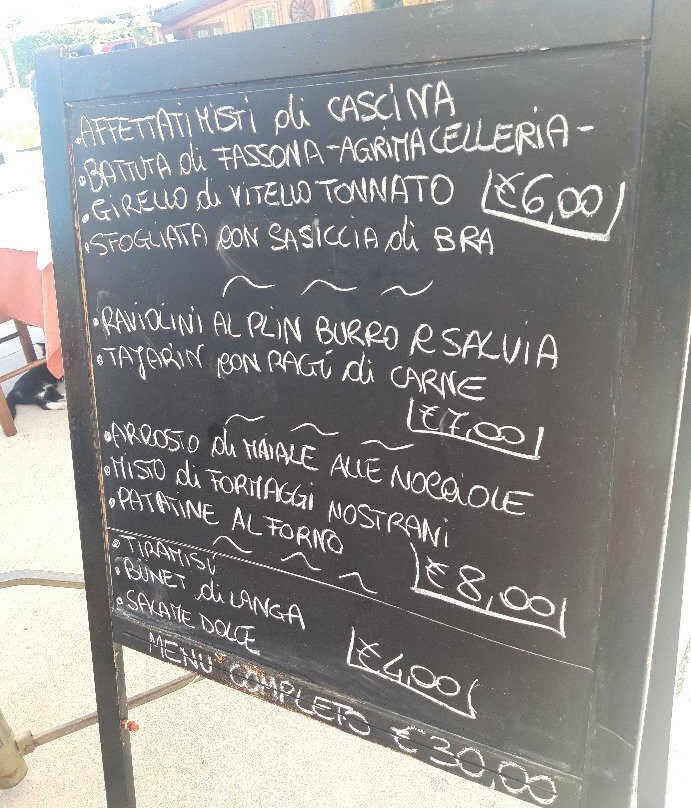 AFFETTATI MISTI di CASCINA
• BATTUTA di FASSONA - AGRIMACELLERIA -
• GIRELLO di VITELLO TONNATO €6,00
• SFOGLIATA CON SASICCIA di BRA
• RAVIOLINI AL PLIN BURRO e SALVIA
• TAJARIN CON RAGÚ di CARNE
€7,00
• ARROSTO di MAIALE ALLE NOCCIOLE
• MISTO di FORMAGGI NOSTRANI
• PATATINE AL FORNO
€8,00
• TIRAMISÚ
• BUNET di LANGA
• SALAME DOLCE
€4,00
MENU COMPLETO €30,00